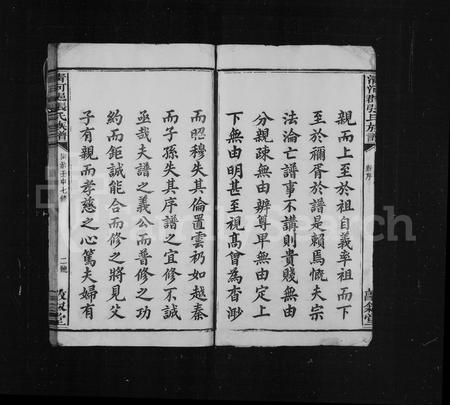 親而上至於祖自義率祖而下
至於禰胥於譜是賴焉慨夫宗
法淪亡譜事不講則貴賤無由
分親疎無由辨尊卑無由定上
下無由明甚至視髙曾為杳渺
而昭穆失其倫置雲礽如越秦
而子孫失其序譜之宜修不誠
亟哉夫譜之義公而普修之功
約而鉅誠能合而修之將見父
子有親而孝慈之心篤夫婦有
清河郡張氏族譜
二號
敦叙堂
FamilySearch